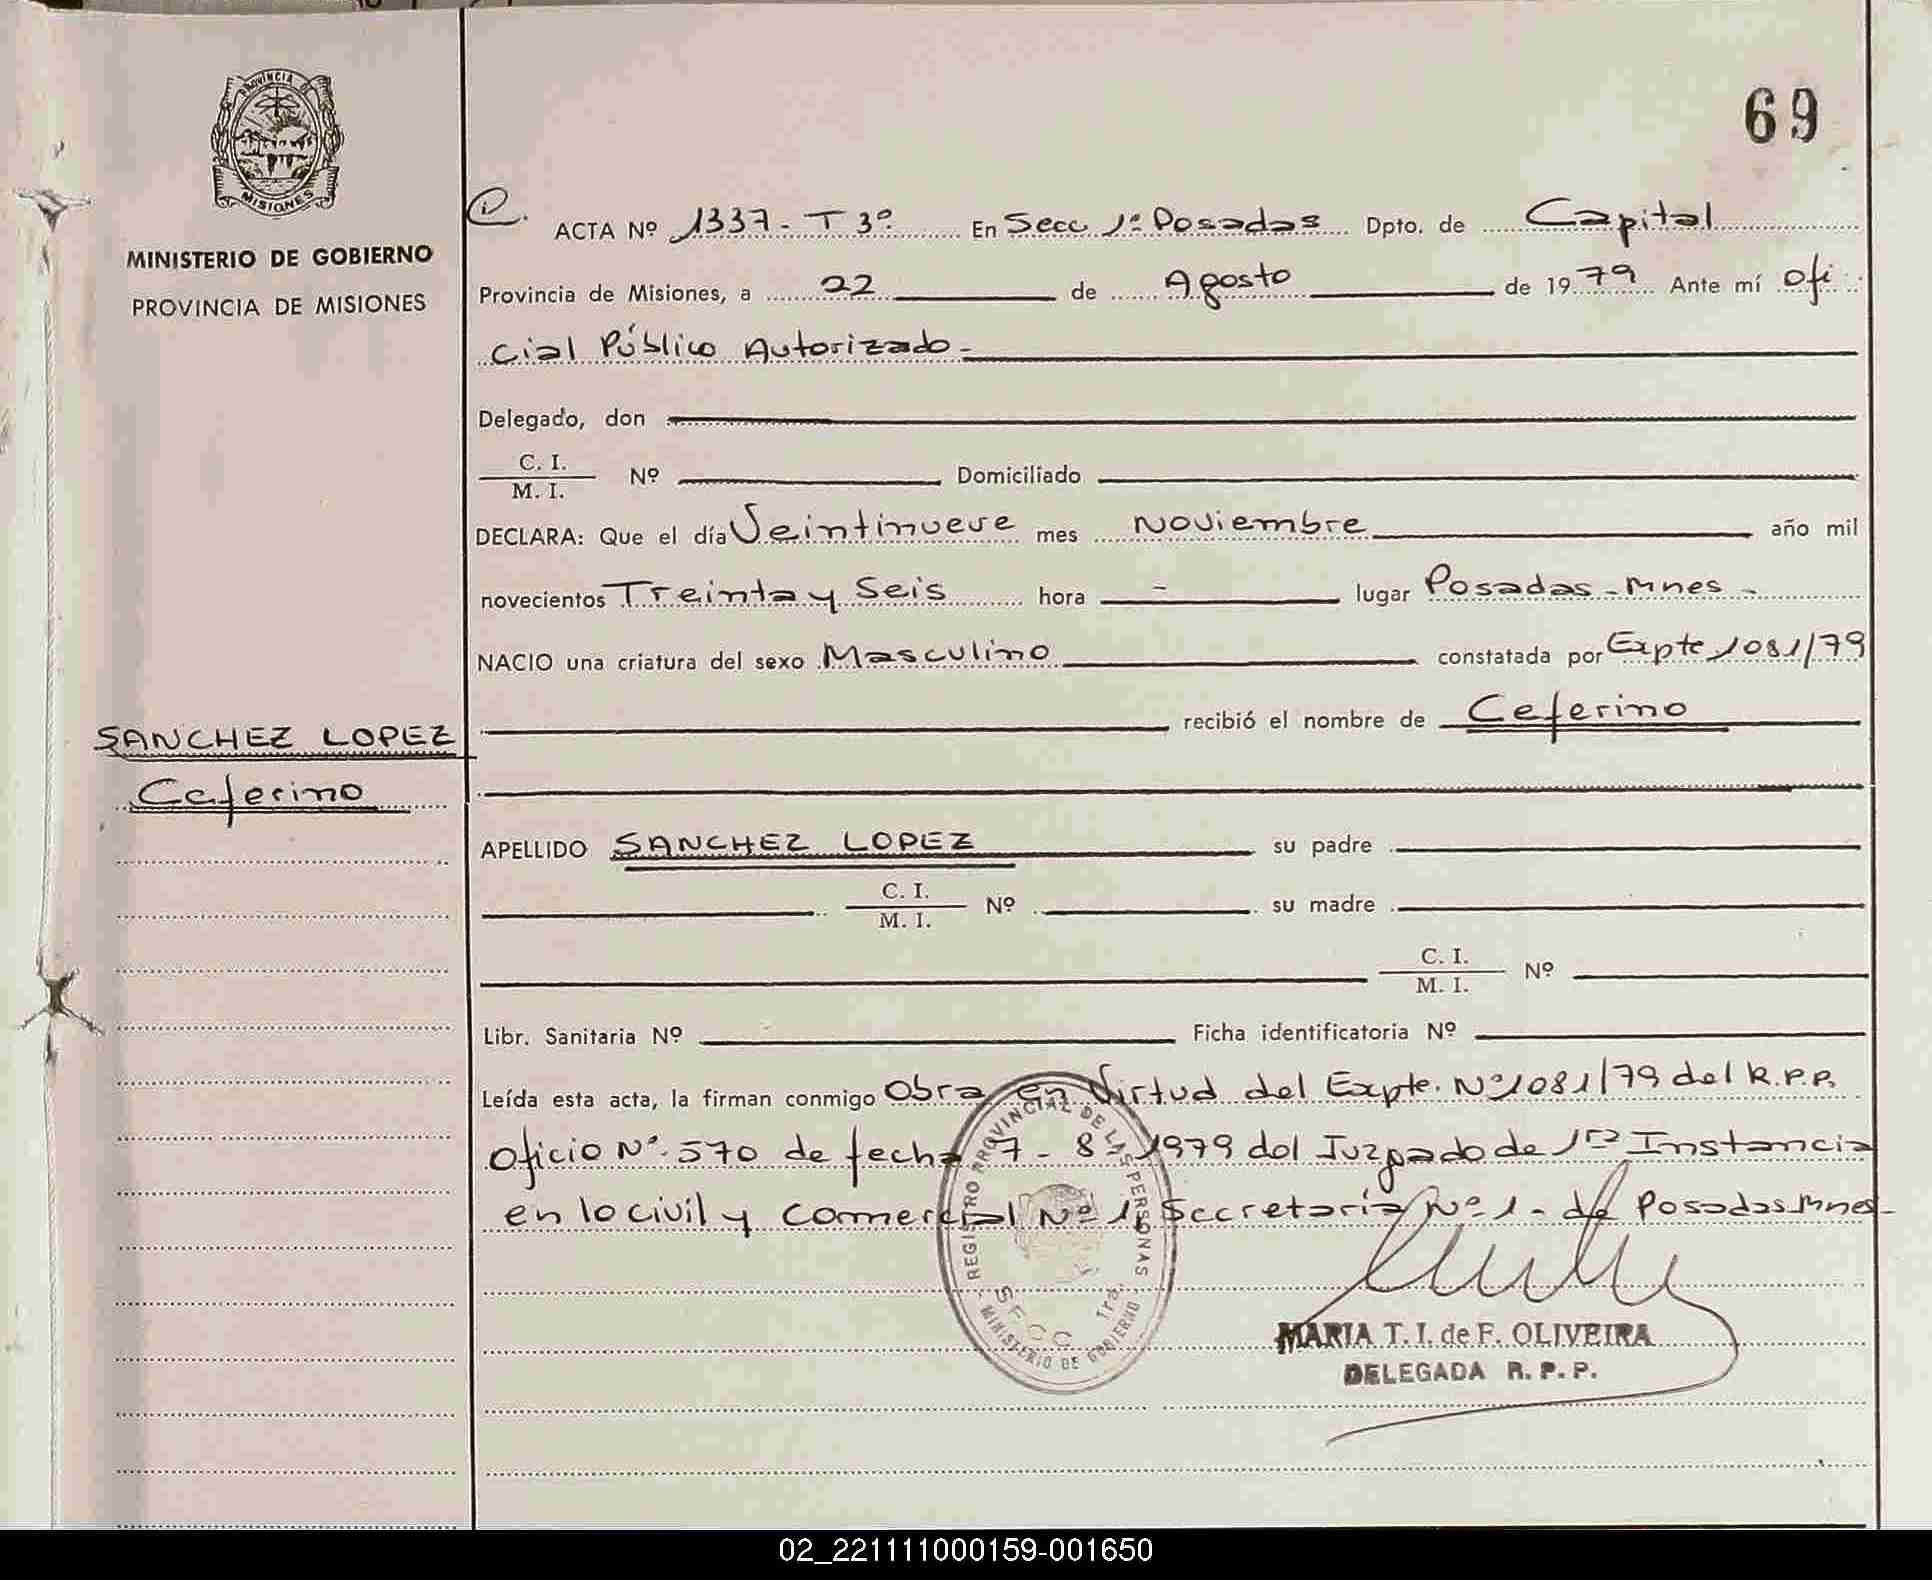 69
PROVINCIA DE
MISIONES
MINISTERIO DE GOBIERNO
PROVINCIA DE MISIONES
SANCHEZ LOPEZ
Ceferino
ACTA Nº 1337 - T 3º En Secc 1º Posadas Dpto. de Capital
Provincia de Misiones, a 22 de Agosto de 1979 Ante mí Ofi
cial Público Autorizado -
Delegado, don
C. I.
M. I.
Nº Domiciliado
DECLARA: Que el día Veintinueve mes noviembre año mil
novecientos Treinta y Seis hora - lugar Posadas - Mnes -
NACIO una criatura del sexo Masculino constatada por Expte 1081/79
recibió el nombre de Ceferino
APELLIDO SANCHEZ LOPEZ su padre
C. I.
M. I.
Nº su madre
C. I.
M. I.
Nº
Libr. Sanitaria Nº Ficha identificatoria Nº
Leída esta acta, la firman conmigo Obra en Virtud del Expte. Nº 1081/79 del R.P.P.
Oficio Nº 570 de fecha 7 - 8 - 1979 del Juzgado de 1ra Instancia
en lo civil y comercial Nº 1, Secretaría Nº 1 - de Posadas Mnes -
REGISTRO PROVINCIAL DE LAS PERSONAS
MINISTERIO DE GOBIERNO
MARIA T. I. de F. OLIVEIRA
DELEGADA R. P. P.
02_221111000159-001650